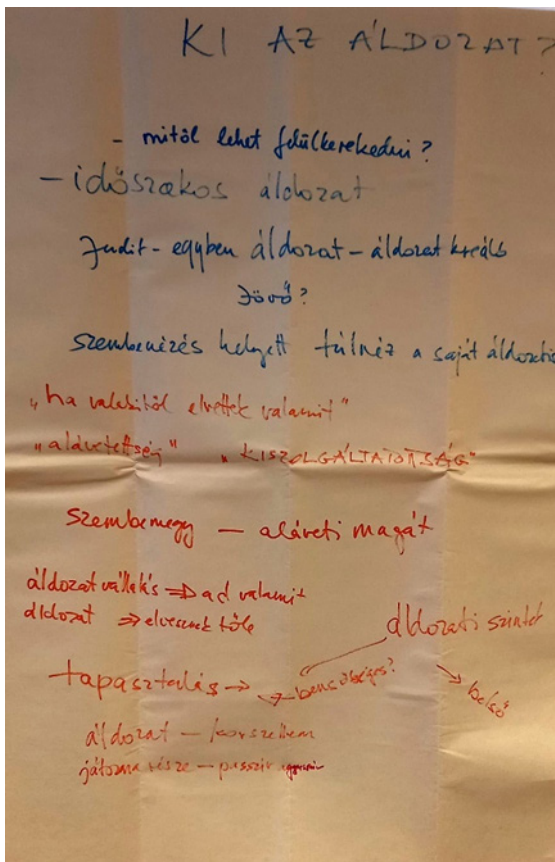 KI AZ ÁLDOZAT?
- mitől lehet felülkerekedni?
- időszakos áldozat
Judit - egyben áldozat - áldozat kreáló
Jövő?
szembenézés helyett túlnéz a saját
"ha valakitől elvettek valamit"
"alávetettség" "KISZOLGÁLTATOTTSÁG"
szembemegy - aláveti magát
áldozatvállalás => ad valamit
áldozat => elvesznek tőle
áldozati szintek
tapasztalás -> -> bensőséges?
-> belső
áldozat - korszellem
játszma része - passzív